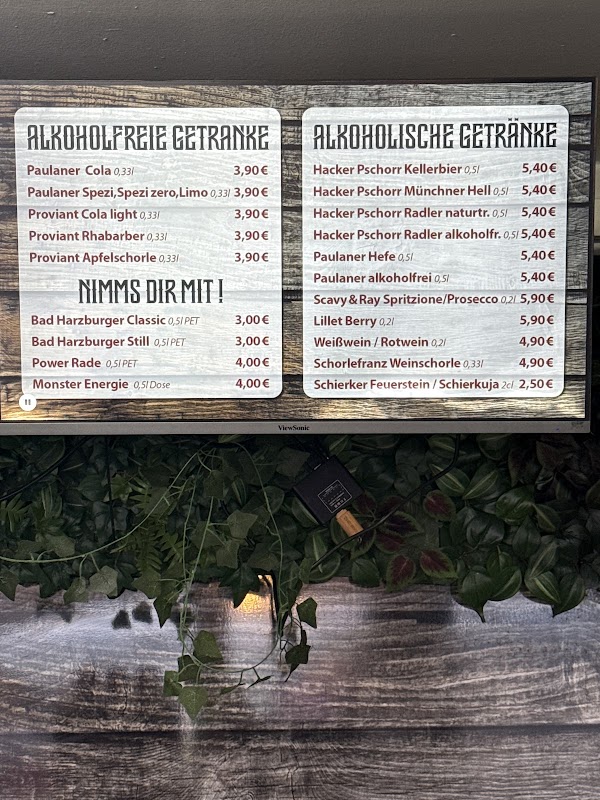 ALKOHOLFREIE GETRÄNKE
Paulaner Cola 0,33l 3,90 €
Paulaner Spezi, Spezi zero, Limo 0,33l 3,90 €
Proviant Cola light 0,33l 3,90 €
Proviant Rhabarber 0,33l 3,90 €
Proviant Apfelschorle 0,33l 3,90 €
NIMMS DIR MIT !
Bad Harzburger Classic 0,5l PET 3,00 €
Bad Harzburger Still 0,5l PET 3,00 €
Power Rade 0,5l PET 4,00 €
Monster Energie 0,5l Dose 4,00 €
ALKOHOLISCHE GETRÄNKE
Hacker Pschorr Kellerbier 0,5l 5,40 €
Hacker Pschorr Münchner Hell 0,5l 5,40 €
Hacker Pschorr Radler naturtr. 0,5l 5,40 €
Hacker Pschorr Radler alkoholfr. 0,5l 5,40 €
Paulaner Hefe 0,5l 5,40 €
Paulaner alkoholfrei 0,5l 5,40 €
Scavy & Ray Spritzione/Prosecco 0,2l 5,90 €
Lillet Berry 0,2l 5,90 €
Weißwein / Rotwein 0,2l 4,90 €
Schorlefranz Weinschorle 0,33l 4,90 €
Schierker Feuerstein / Schierkuja 2cl 2,50 €
ViewSonic